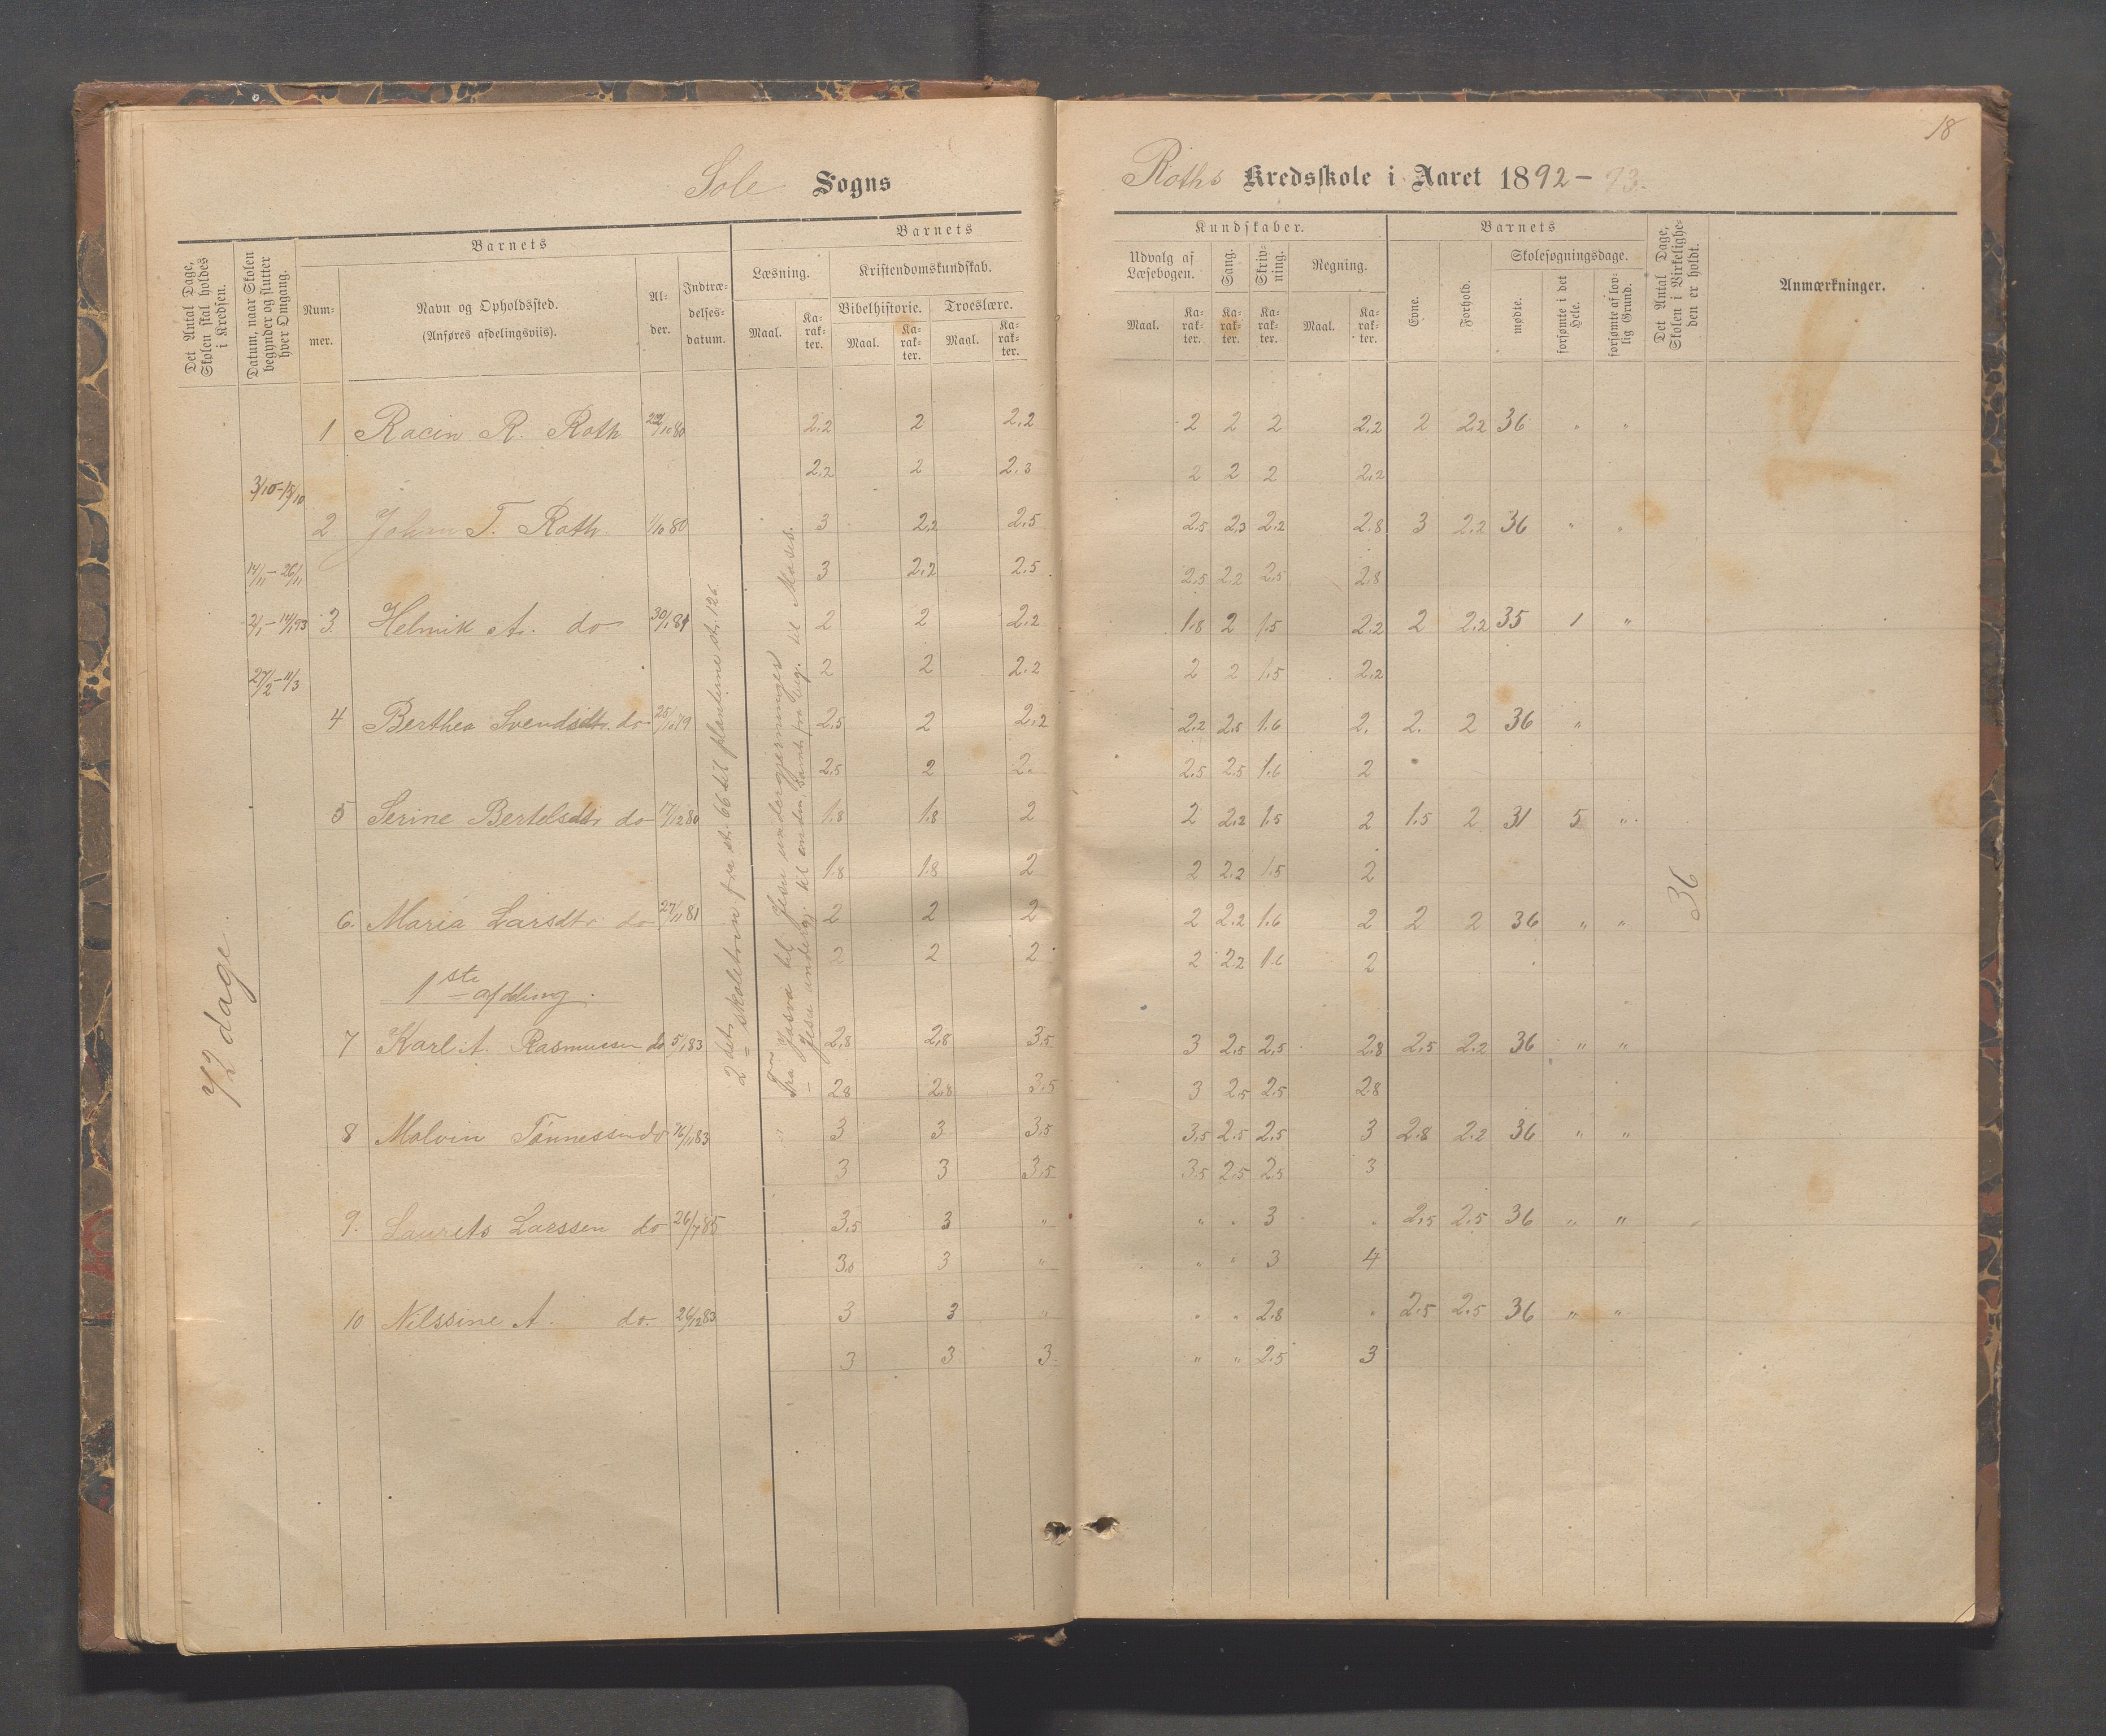 18
Sole Sogns
Roths Kredsskole i Aaret 1892-93.
Det Antal Dage, Skolen skal holdes i Kredsen.
Datum, naar Skolen begynder og slutter hver Omgang.
Barnets
Num-
mer.
Navn og Opholdssted.
(Anføres afdelingsviis).
Al-
der.
Indtræ-
delses-
datum.
Barnets
Læsning.
Maal.
Ka-
rak-
ter.
Kristendomskundskab.
Bibelhistorie.
Maal.
Ka-
rak-
ter.
Troeslære.
Maal.
Ka-
rak-
ter.
Kundskaber.
Udvalg af
Læsebogen.
Maal.
Ka-
rak-
ter.
Sang.
Ka-
rak-
ter.
Skriv-
ning.
Ka-
rak-
ter.
Regning.
Maal.
Ka-
rak-
ter.
Barnets
Evne.
Forhold.
Skolesøgningsdage.
mødte.
forsømte i det
Hele.
forsømte af lov-
lig Grund.
Det Antal Dage,
Skolen i Virkelighe-
den er holdt.
Anmærkninger.
1 Racin R. Roth 22/10 80 2.2 2 2.2 2 2 2 2.2 2 2.2 36 " "
2.2 2 2.3 2 2 2 2.2
3/10-15/10
2 Johan T. Roth 1/10 80 3 2.2 2.5 2.5 2.3 2.2 2.8 3 2.2 36 " "
14/11-26/11 3 2.2 2.5 2.5 2.2 2.5 2.8
2/1-14/1 93 3. Helmik A. do 30/1 81 2 2 2.2 1.8 2 1.5 2.2 2 2.2 35 1 "
27/2-11/3 2 2 2.2 2 2 1.5 2.2
4 Berthea Svendsdtr. do 2.5 2 2.2 2.2 2.5 1.6 2. 2. 2 36 "
2.5 2 2. 2.5 2.5 1.6 2
5 Serine Bertelsdtr do 17/12 80 1.8 1.8 2 2 2.2 1.5 2 1.5 2 31 5 "
1.8 1.8 2 2 2.2 1.5 2
36
6. Maria Larsdtr do 27/11 81 2 2 2 2 2.2 1.6 2 2 2 36 " "
2 2 2 2 2.2 1.6 2
1ste afdling.
7 Karl A. Rasmussen do 5/1 83 2.8 2.8 3.5 3 2.5 2.5 2.8 2.5 2.2 36 " "
2.8 2.8 3.5 3 2.5 2.5 2.8
8 Malvin Tønnessen do 16/11 83 3 3 3.5 3.5 2.5 2.5 3 2.8 2.2 36 " "
3 3 3.5 3.5 2.5 2.5 3
9. Laurits Larssen do 26/7 85 3.5 3 " " " 3 " 2.5 2.5 36 " "
3.5 3 " " " 3 4
10 Nilssine A. do. 26/12 83 3 3 " " " 2.8 " 2.5 2.5 36 " "
3 3 3 " " 2.5 3
dage
2det skoletrin fra st. 66 til planterne st. 126.
Fra Josva til Jesu undergjerninger
Jesu undergj. til enden, samt fra beg. til Moses.